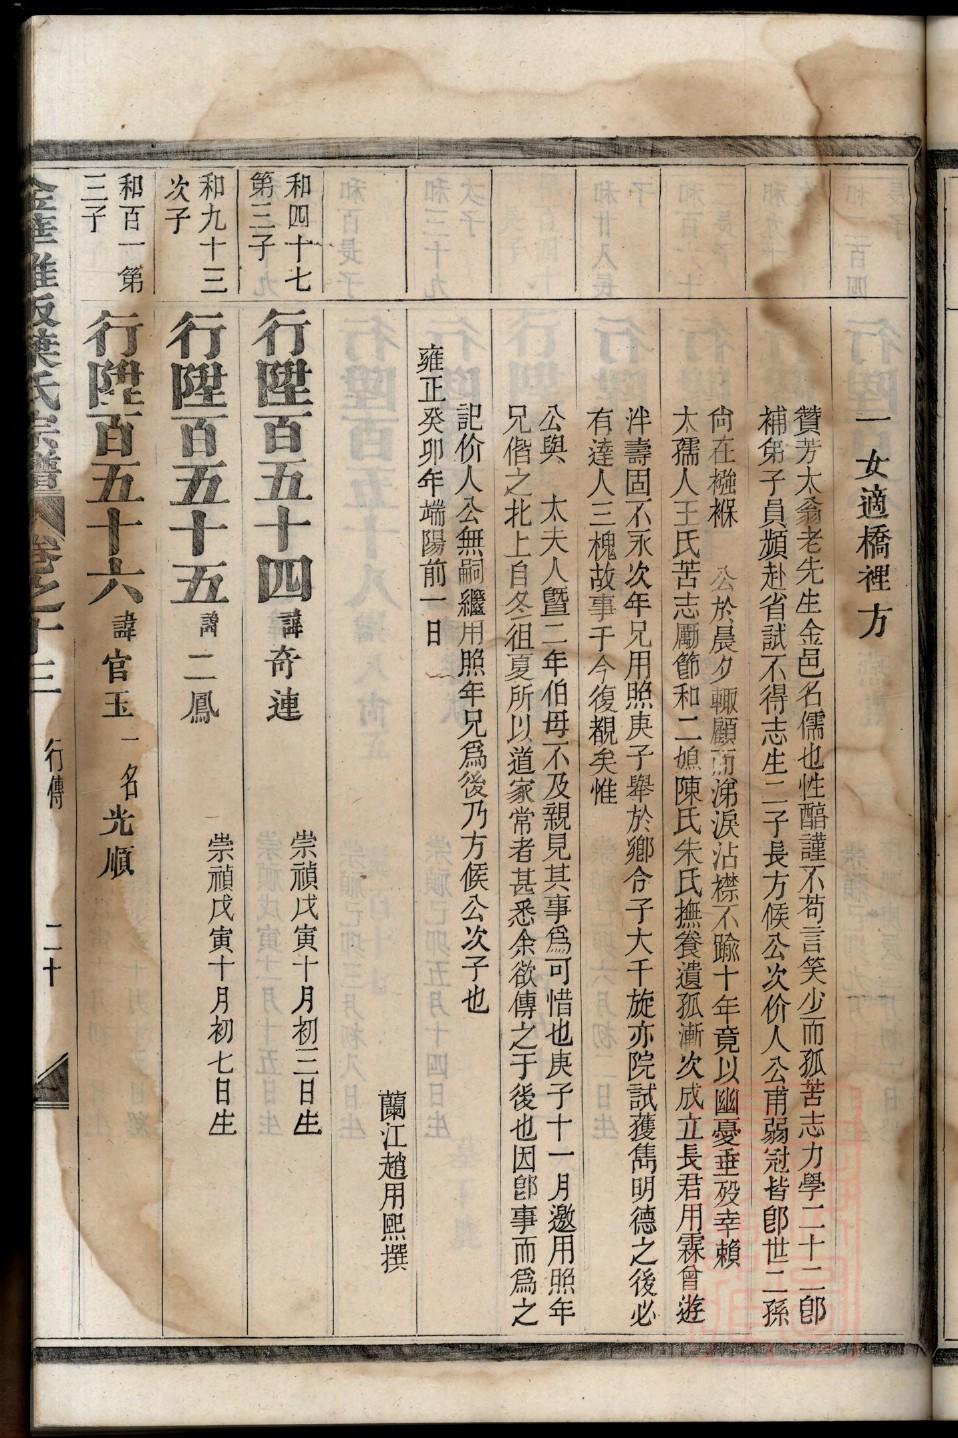 一女適橋裡方
贊芳太翁老先生金邑名儒也性醅謹不苟言笑少而孤苦志力學二十二卽
補第子員頻赴省試不得志生二子長方候公次价人公甫弱冠皆卽世二孫
尙在襁褓 公於晨夕輙顧而涕淚沾襟不踰十年竟以幽憂垂歿幸賴
太孺人王氏苦志勵節和二媳陳氏朱氏撫養遺孤漸次成立長君用霖曾遊
泮壽固不永次年兄用照庚子舉於鄉令子大千旋亦院試獲雋明德之後必
有達人三槐故事于今復覩矣惟
公與 太夫人曁二年伯毋不及親見其事爲可惜也庚子十一月邀用照年
兄偕之北上自冬徂夏所以道家常者甚悉余欲傳之于後也因卽事而爲之
記价人公無嗣繼用照年兄爲後乃方候公次子也
雍正癸卯年端陽前一日
蘭江趙用熙撰
和四十七
第三子
行陞百五十四 諱奇連 崇禎戊寅十月初三日生
和九十三
次子
行陞百五十五 諱二鳳 崇禎戊寅十月初七日生
和百一第
三子
行陞百五十六 諱官玉一名光順
金華雅阪葉氏宗譜 卷之十三 行傳 二十